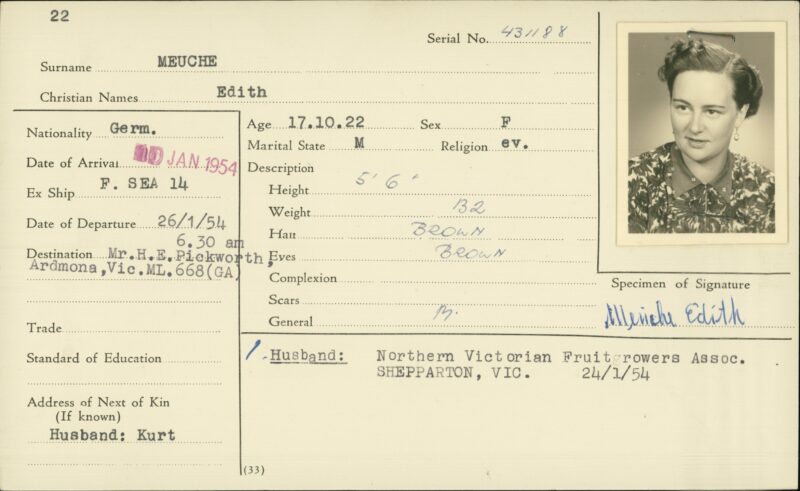 22
Serial No. 431188
Surname MEUCHE
Christian Names Edith
Nationality Germ.
Date of Arrival 10 JAN 1954
Ex Ship F. SEA 14
Date of Departure 26/1/54
6.30 am
Destination Mr.H.E.Pickworth,
Ardmona,Vic.ML.668(GA)
Trade
Standard of Education
Address of Next of Kin
(If known)
Husband: Kurt
Age 17.10.22 Sex F
Marital State M Religion ev.
Description
Height 5' 6"
Weight 132
Hair BROWN
Eyes BROWN
Complexion
Scars
General
Specimen of Signature
Meuche Edith
Husband: Northern Victorian Fruitgrowers Assoc.
SHEPPARTON, VIC. 24/1/54
(33)